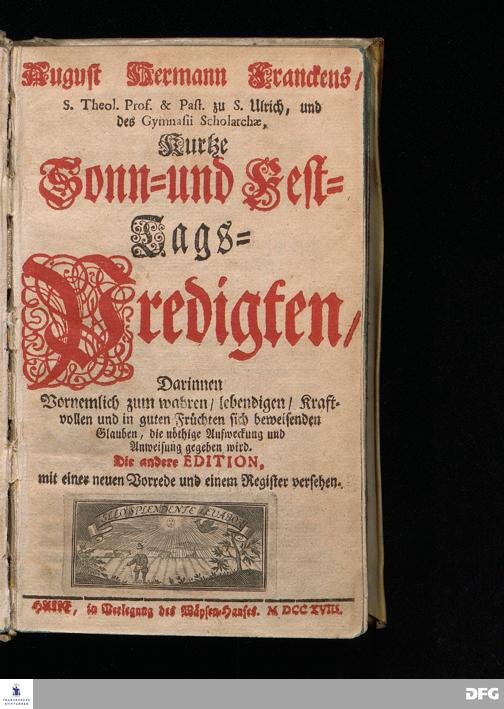 August Hermann Franckens/
S. Theol. Prof. & Past. zu S. Ulrich, und
des Gymnasii Scholarchæ,
Kurtze
Sonn- und Fest-
Tags-
Predigten/
Darinnen
Vornemlich zum wahren/ lebendigen/ Kraft-
vollen und in guten Früchten sich beweisenden
Glauben, die nöthige Aufweckung und
Anweisung gegeben wird.
Die andere EDITION,
mit einer neuen Vorrede und einem Register versehen.
ILLO SPLENDENTE LEVABOR
HALLE, in Verlegung des Wäysen-Hauses. M DCC XVIII.
FRANCKESCHE
STIFTUNGEN
DFG